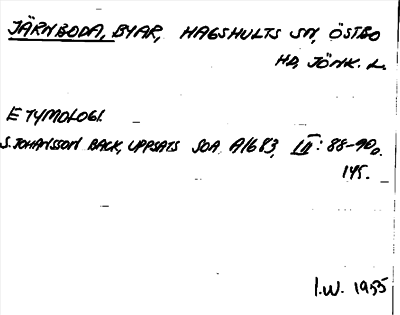 JÄRNBODA, BYAR, HAGSHULTS SN, ÖSTBO
HD, JÖNK. L.
ETYMOLOGI.
S. JOHANSSON BACK, UPPSATS SOA A1683, III: 88-90,
145.
I.W. 1955